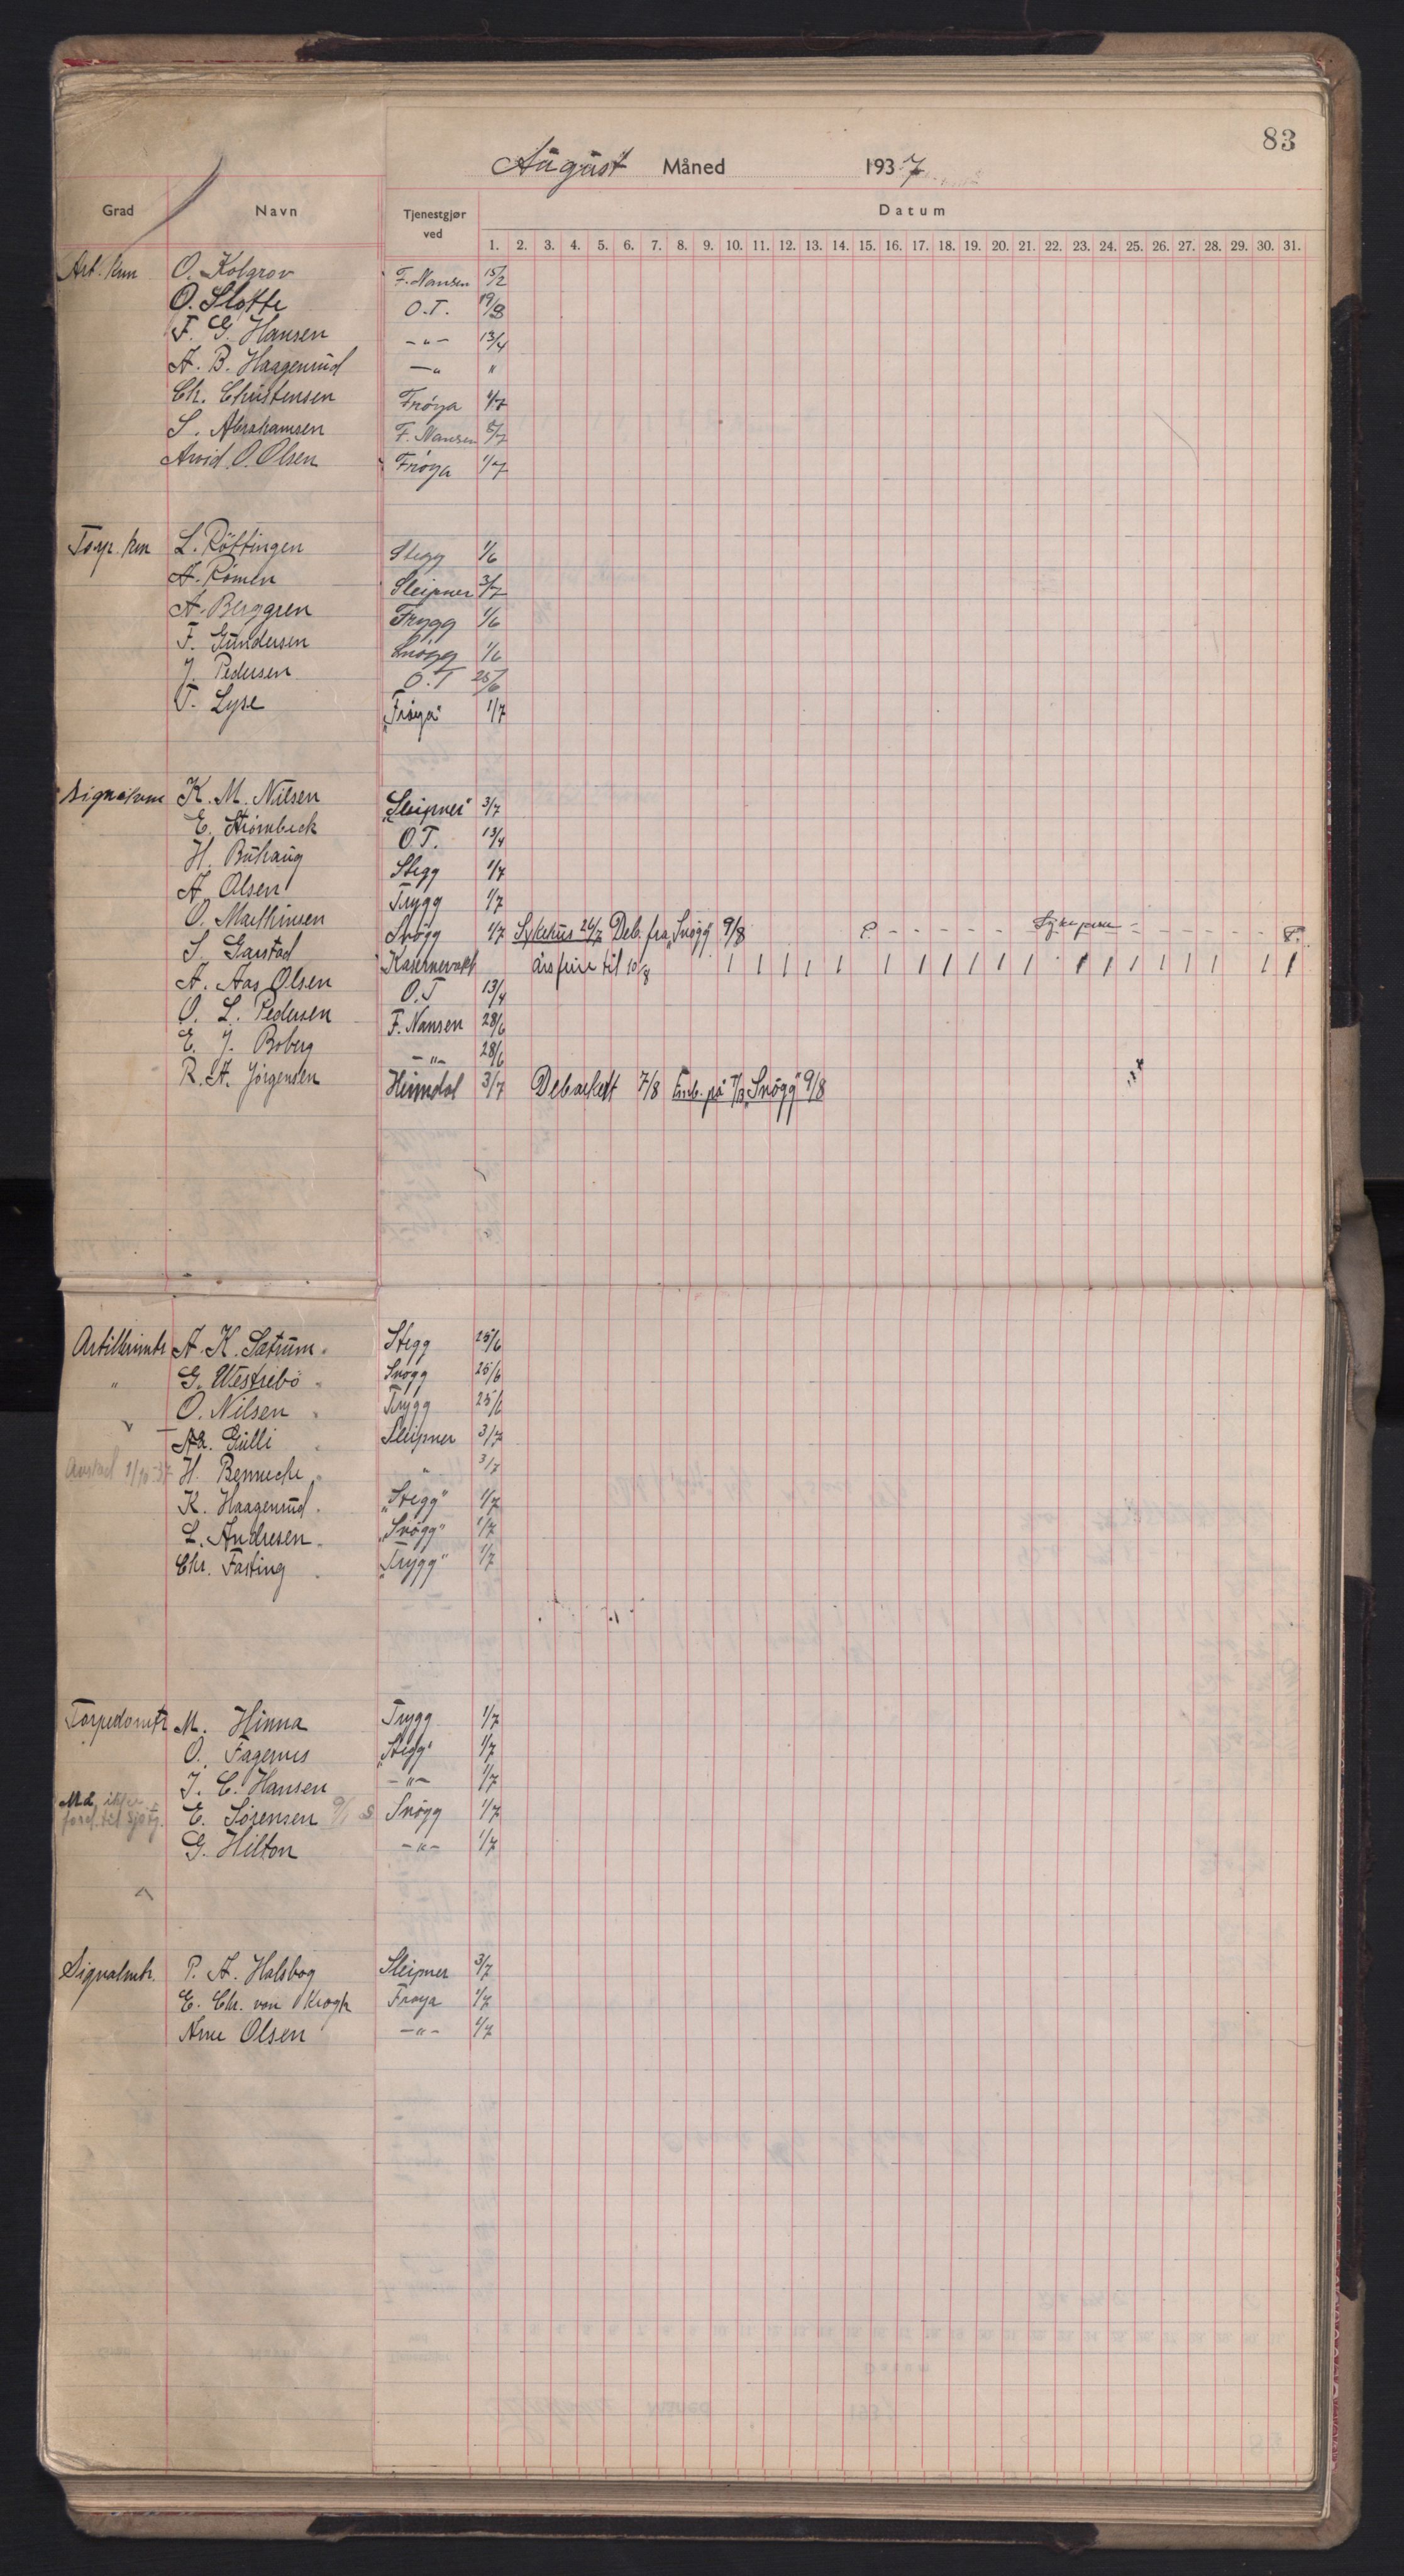 83
August Måned 1937
Grad Navn Tjenestgjør ved Datum
1. 2. 3. 4. 5. 6. 7. 8. 9. 10. 11. 12. 13. 14. 15. 16. 17. 18. 19. 20. 21. 22. 23. 24. 25. 26. 27. 28. 29. 30. 31.
Art. knn O. Kolgrov F. Nansen 15/2
O. Slotte O.T. 19/8
F. G. Hansen -"- 13/4
A. B. Haagenrud -" "
Ch. Christensen Frøya 1/7
S. Abrahamsen F. Nansen 5/7
Arvid O. Olsen Frøya 1/7
Torp. knn L. Röttingen Stegg 1/6
A. Römen Sleipner 3/7
A. Berggren Trygg 1/6
F. Gundersen Snögg 1/6
J. Pedersen O.T 25/6
T. Lyse „Frøya" 1/7
Signalknn K. M. Nilsen „Sleipner" 3/7
E. Strömbeck O.T. 13/4
H. Buhaug Stegg 1/7
A. Olsen Trygg 1/7
O. Mathinsen Snögg 1/7 Sykehus 26/7 Deb. fra „Snögg" 9/8
S. Garstad Kasernevakt årsferie til 10/8 1 1 1 1 1 1 1 1 1 1 1 1 1 1 1 1 1 1 1 1
A. Aas Olsen O.T 13/4
O. L. Pedersen F. Nansen 28/6
E. J. Boberg -"- 28/6
R. A. Jörgensen Heimdal 3/7 Debarkert 7/8 Emb. på „Snögg" 9/8
Artillerimtr A. K. Sætrum Stegg 25/6
" G. Westrebö Snögg 25/6
O. Nilsen Trygg 25/6
Aa. Gulli Sleipner 3/7
H. Benneche " 3/7
K. Haagenrud „Stegg" 1/7
L. Andresen „Snögg" 1/7
Chr. Fasting „Trygg" 1/7
Torpedomtr M. Hinna Trygg 1/7
O. Fagernes „Stegg" 1/7
J. C. Hansen -"- 1/7
E. Sörensen Snögg 1/7
G. Hilton -"- 1/7
Signalmtr. P. A. Halsbog Sleipner 3/7
E. Chr. von Krogh Frøya 1/7
Arne Olsen -"- 1/7